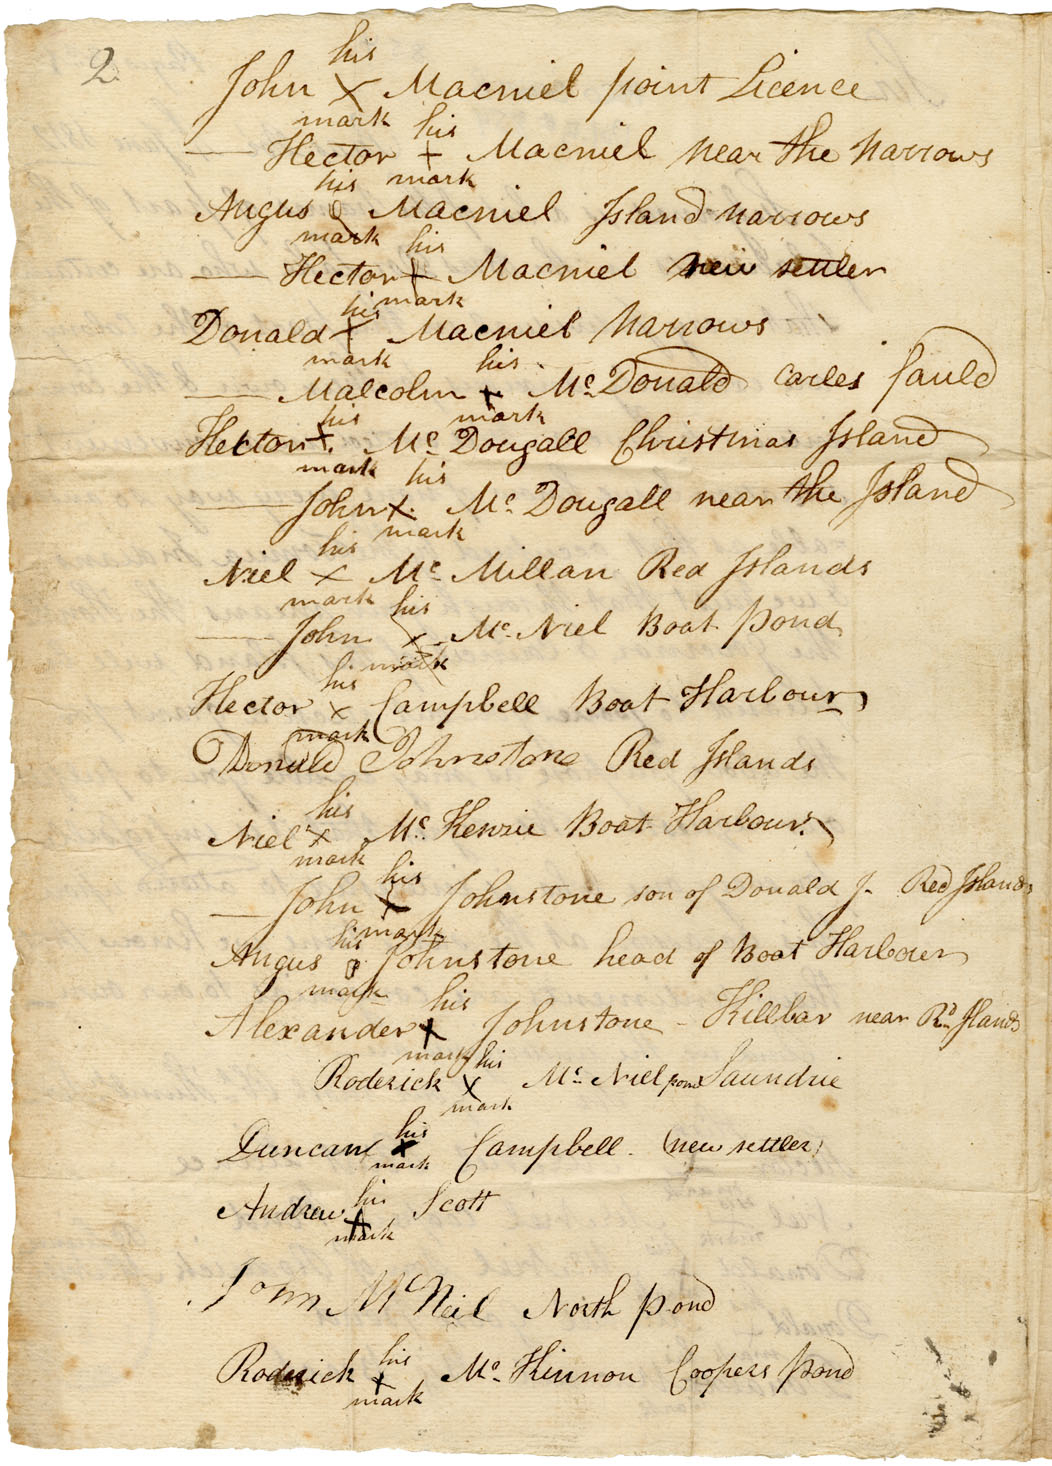 2
his
John X Macniel point Licence
mark his
— Hector + Macniel near the narrows
his mark
Angus o Macniel Island narrows
mark his
— Hector + Macniel new settler
his mark
Donald + Macniel narrows
mark his
— Malcolm + Mc Donald Carles fauld
his mark
Hector +. Mc Dougall Christmas Island
mark his
— John X. Mc Dougall near the Island
his mark
Niel X Mc Millan Red Islands
mark his
— John X Mc Niel Boat pond
his mark
Hector X Campbell Boat Harbour
mark
Donald Johnstone Red Islands
his
Niel X Mc Kenzie Boat Harbour
mark his
— John X Johnstone son of Donald J. Red Islands
his mark
Angus o Johnstone head of Boat Harbour
mark his
Alexander X Johnstone - Killbar near Rd Islands
mark his
Roderick X Mc Niel pond Saundrie
mark
his
Duncan X Campbell. (new settler)
mark
his
Andrew X Scott
mark
John McNeil North pond
his
Roderick X Mc Kinnon Coopers pond
mark